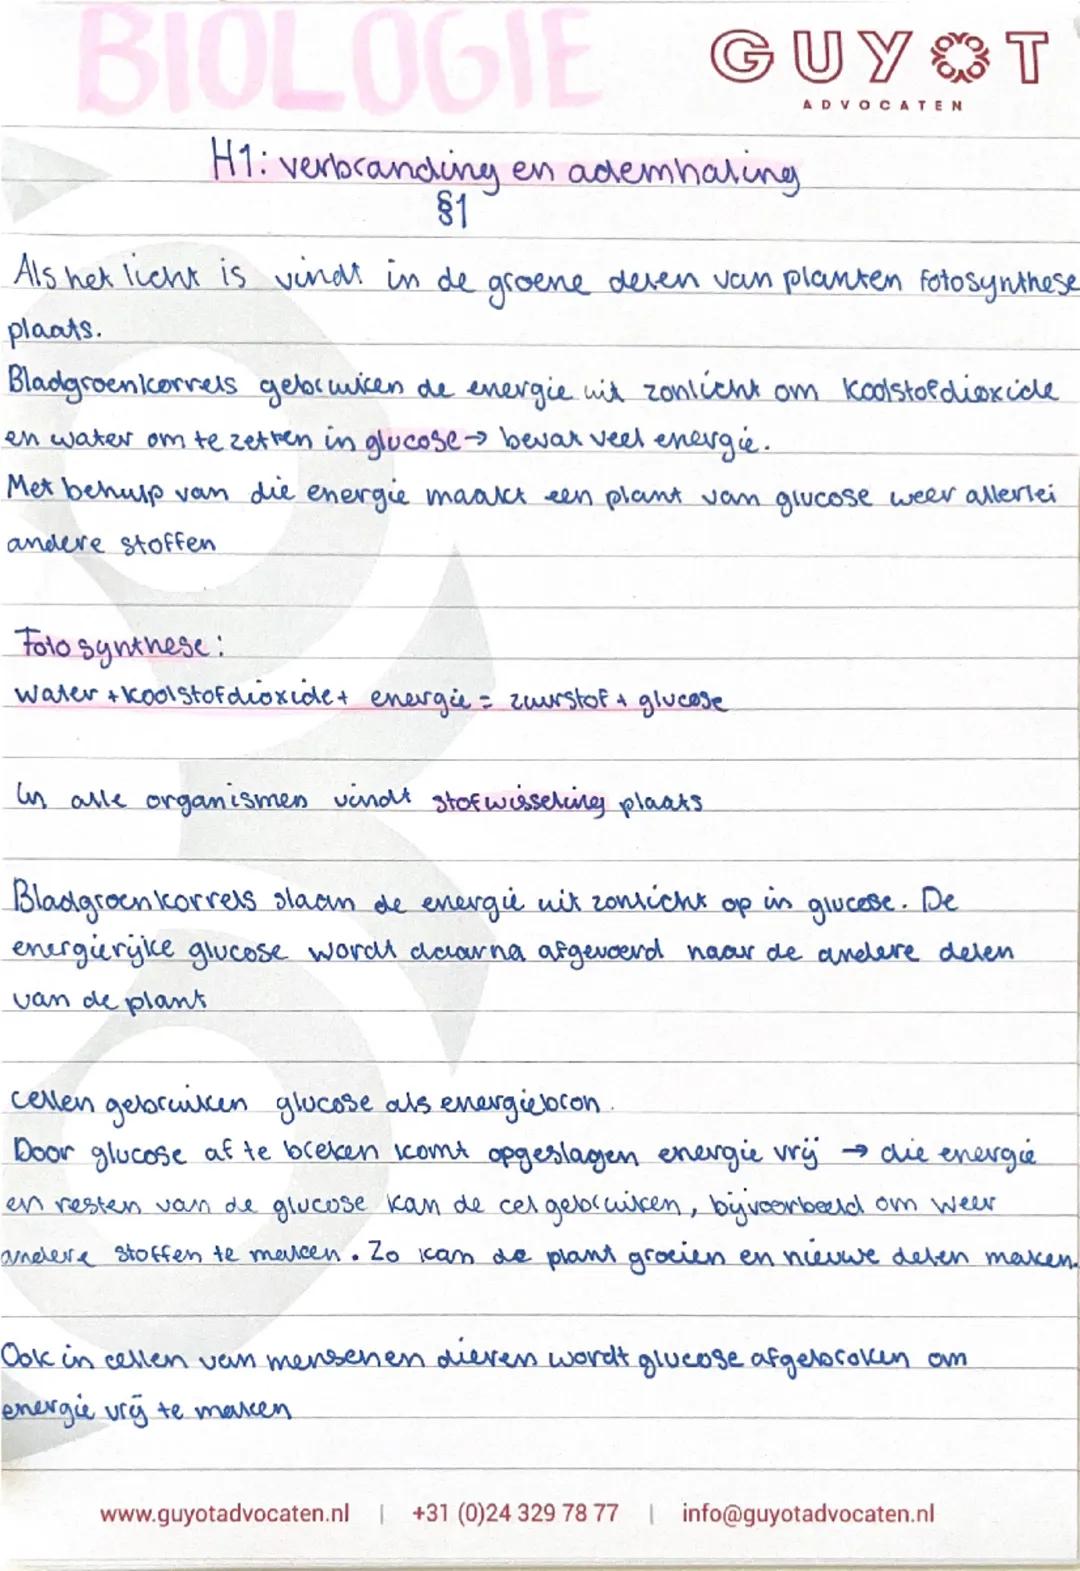 BIOLOGIE
GUYOT
ADVOCATEN
H1: verbranding en ademhaling
§1
Als het licht is vindt in de groene delen van planten fotosynthese
plaats.
Bladgroenkorrels gebruiken de energie uit zonlicht om koolstofdioxide
en water om te zetten in glucose → bevat veel energie.
Met behulp van die energie maakt een plant van glucose weer allerlei
andere stoffen
Fotosynthese:
water + koolstofdioxide + energie = zuurstof + glucose
In alle organismen vindt stofwisseling plaats
Bladgroenkorrels slaan de energie uit zonlicht op in glucose. De
energierijke glucose wordt daarna afgevoerd naar de andere delen
van de plant
cellen gebruiken glucose als energiebron.
Door glucose af te breken komt opgeslagen energie vrij → die energie
en resten van de glucose kan de cel gebruiken, bijvoorbeeld om weer
andere stoffen te maken. Zo kan de plant groeien en nieuwe delen maken.
Ook in cellen van mensen en dieren wordt glucose afgebroken om
energie vrij te maken
www.guyotadvocaten.nl | +31 (0)24 329 78 77 | info@guyotadvocaten.nl